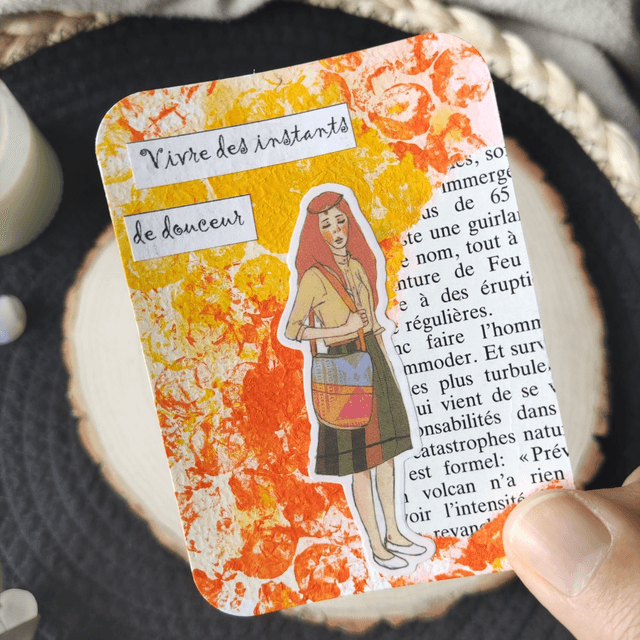 Vivre des instants
de douceur
es, so
immerge
us de 65
ste une guirla
e nom, tout à
nture de Feu
à des érupti
régulières.
c faire l'homm
mmoder. Et surv
es plus turbule
ui vient de se v
onsabilités dans
catastrophes natu
est formel: «Prév
volcan n'a rien
voir l'intensité
revand